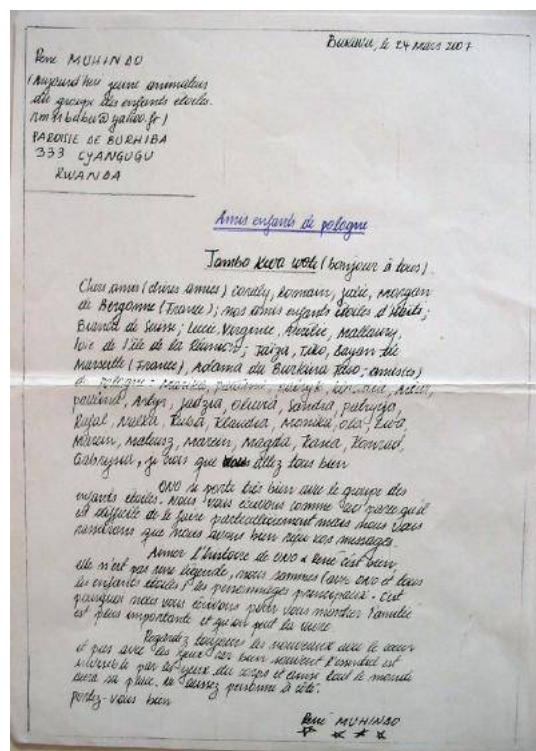 Bukavu, le 24 Mars 2007
René MUHINDO
(Aujourd'hui jeune animateur
du groupe des enfants étoiles.
@yahoo.fr)
PAROISSE DE BURHIBA
333 CYANGUGU
RWANDA
Amis enfants de pologne
Jambo kwa wote (bonjour à tous).
Chers amis (chères amies) Coraly, Romain, Julie, Morgan
de Bergonne (France); nos amis enfants étoiles d'Haïti;
Bianca de Suisse; Lucie, Virginie, Mallaury,
de l'île de la Réunion; Taïza, Tiko, Bayan de
Marseille (France), Adama du Burkina Faso; ami(es)
de pologne: Patryk,
Artyr, Jadzia, Oliwia, Sandra, patrycja,
Rafal, Natka, Kuba, Klaudia, Monika, Ola, Ewa,
Marcin, Mateusz, Marcin, Magda, Kasia, Konrad,
Gabrysia, je crois que vous allez tous bien
ONO se porte très bien avec le groupe des
enfants étoiles. Nous vous écrivons comme ça parce qu'il
est difficile de le faire particulièrement mais nous vous
que nous avons bien reçu vos messages.
Aimer l'histoire de ONO & René c'est bien,
elle n'est pas une légende, nous sommes (avec ONO et tous
les enfants étoiles) les personnages principaux. C'est
pourquoi nous vous écrivons pour vous montrer l'amitié
est plus importante et qu'on peut la vivre
Regardez toujours les nouveaux avec le cœur
et pas avec les yeux car bien souvent l'essentiel est
invisible par les yeux du corps et ainsi tout le monde
aura sa place. Ne laissez personne à côté.
portez-vous bien
René MUHINDO